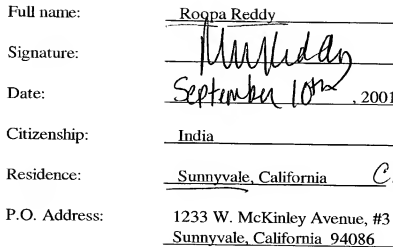 Full name: Roopa Reddy
Signature:
Date: September 10th, 2001
Citizenship: India
Residence: Sunnyvale, California C
P.O. Address: 1233 W. McKinley Avenue, #3
Sunnyvale, California 94086